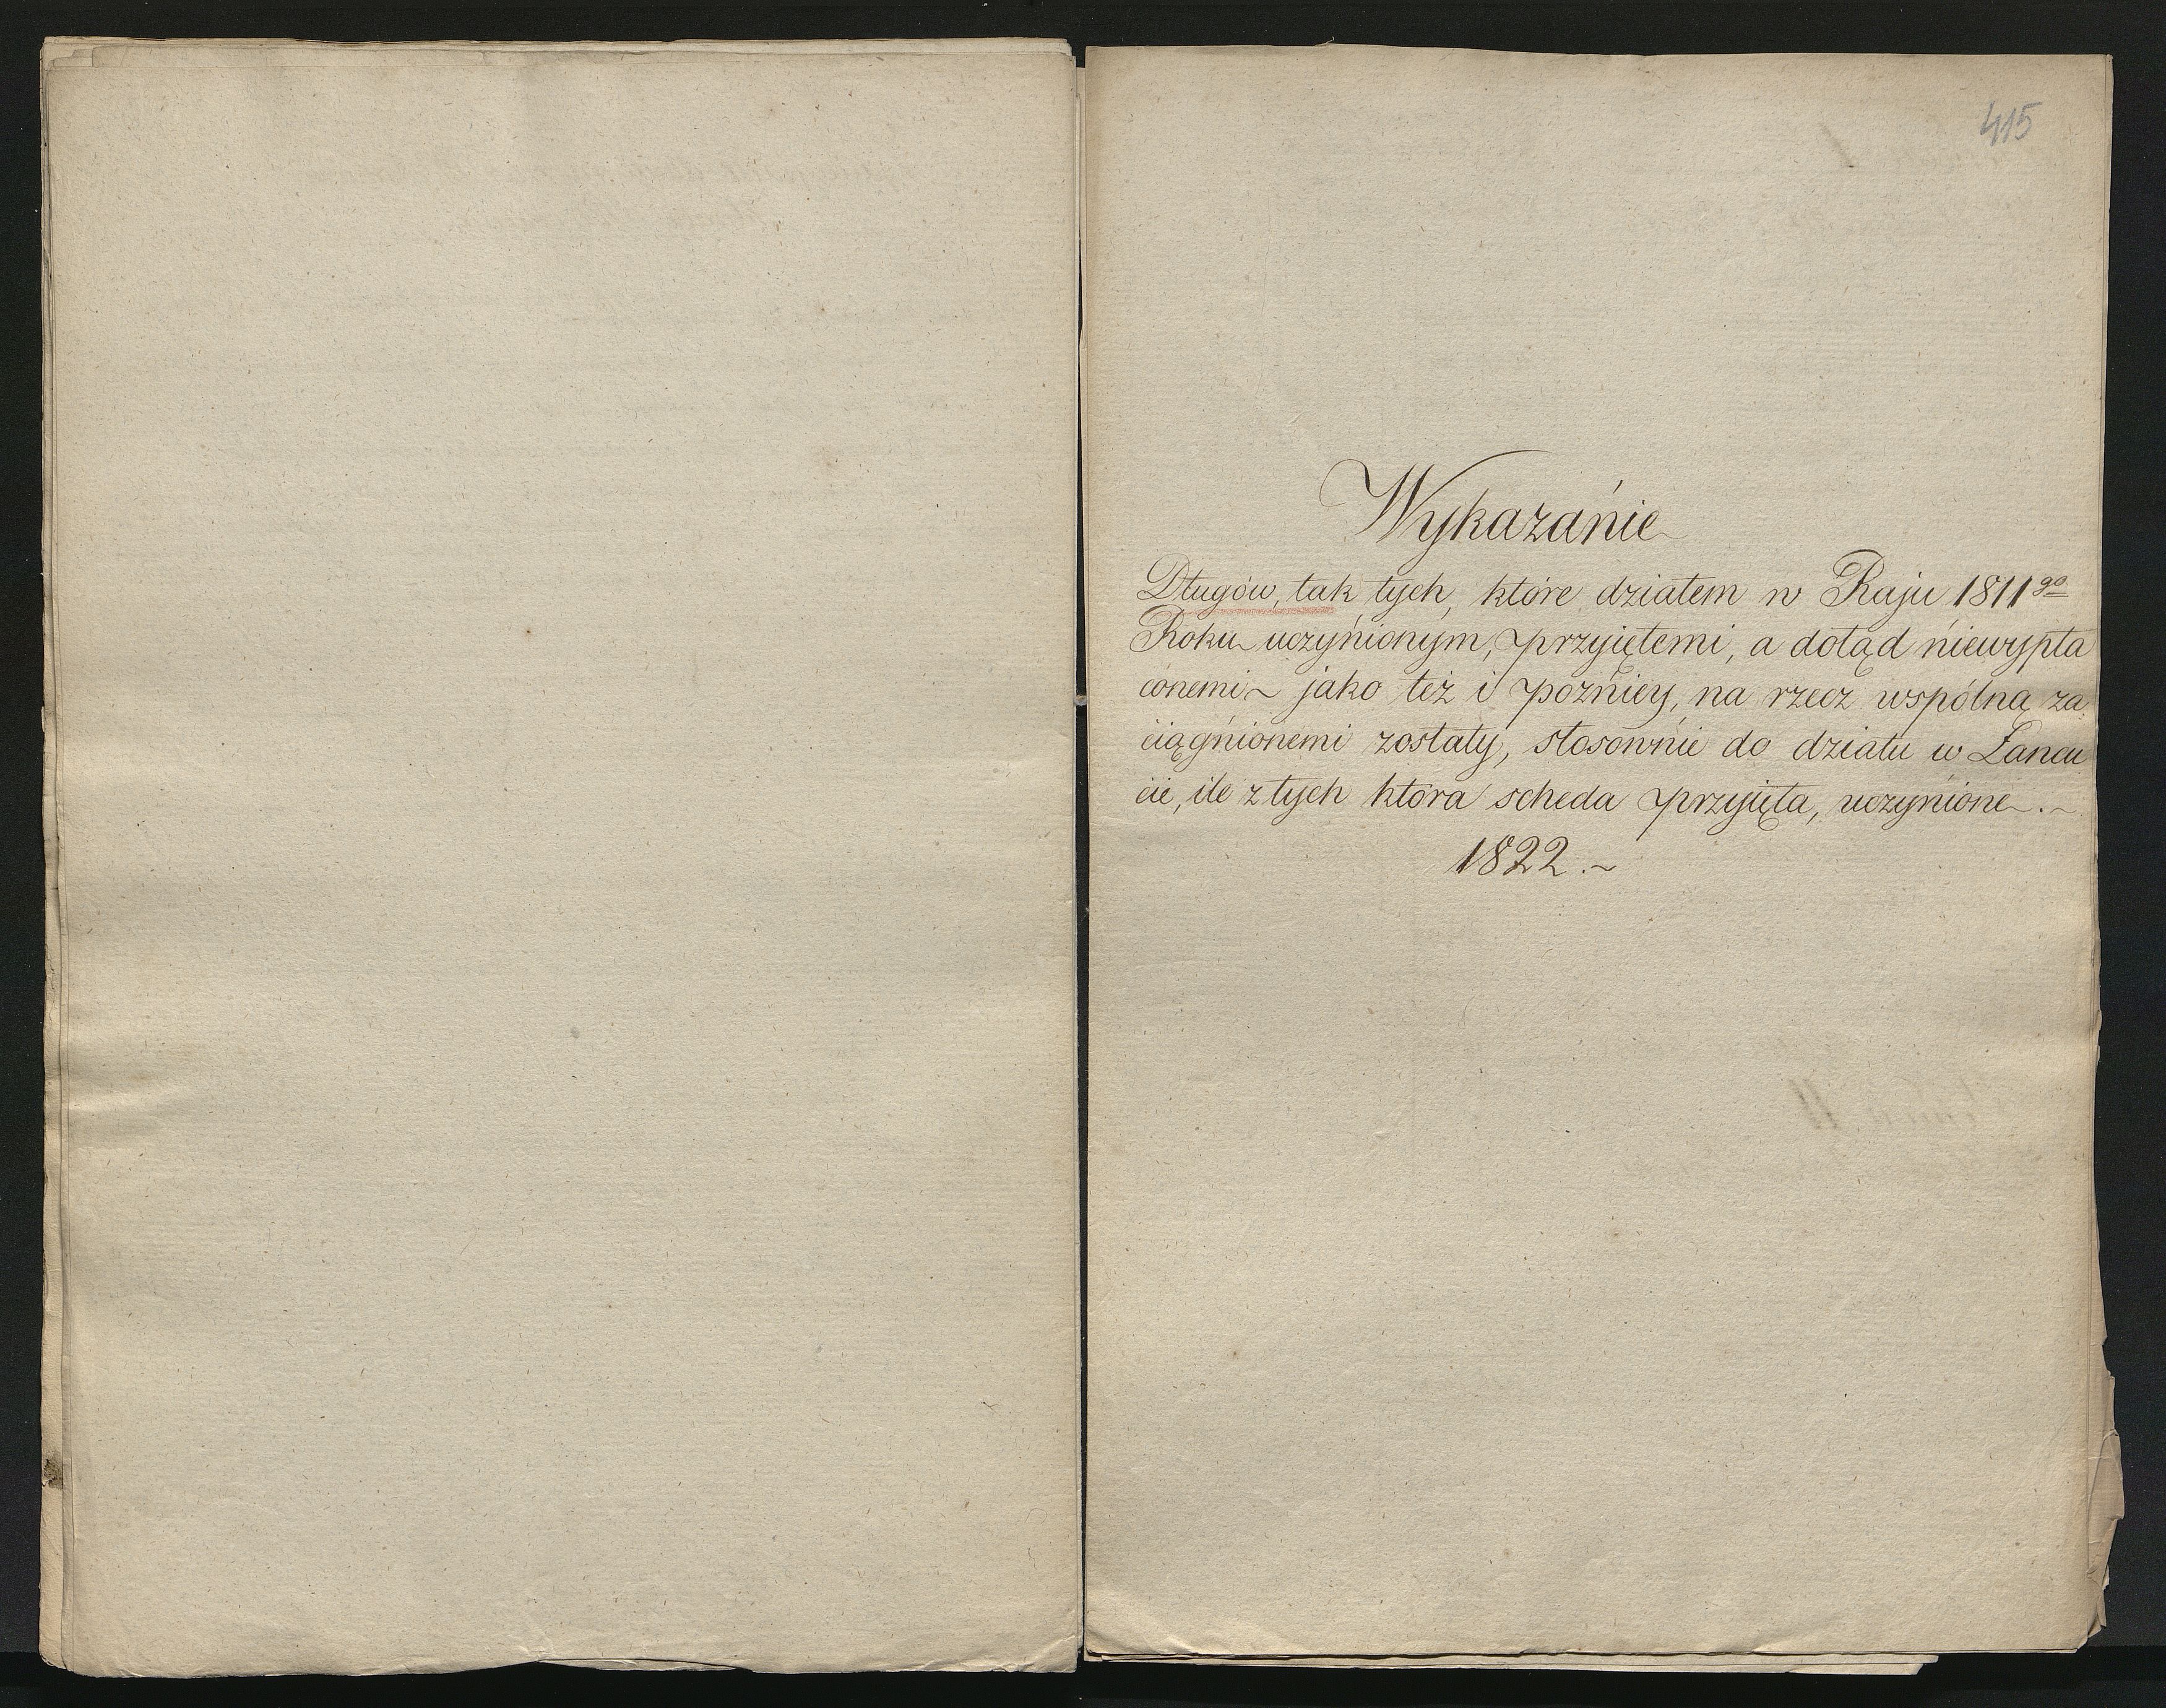 415
Wykazanie
Długów, tak tych, które działem w Raju 1811go
Roku uczynionym, przyiętemi, a dotąd niewypła
conemi jako też i pozniey, na rzecz wspólną za
ciągnionemi zostały, stosownie do działu w Łancu
cie, ile z tych która scheda przyięta, uczynione.~
1822.~